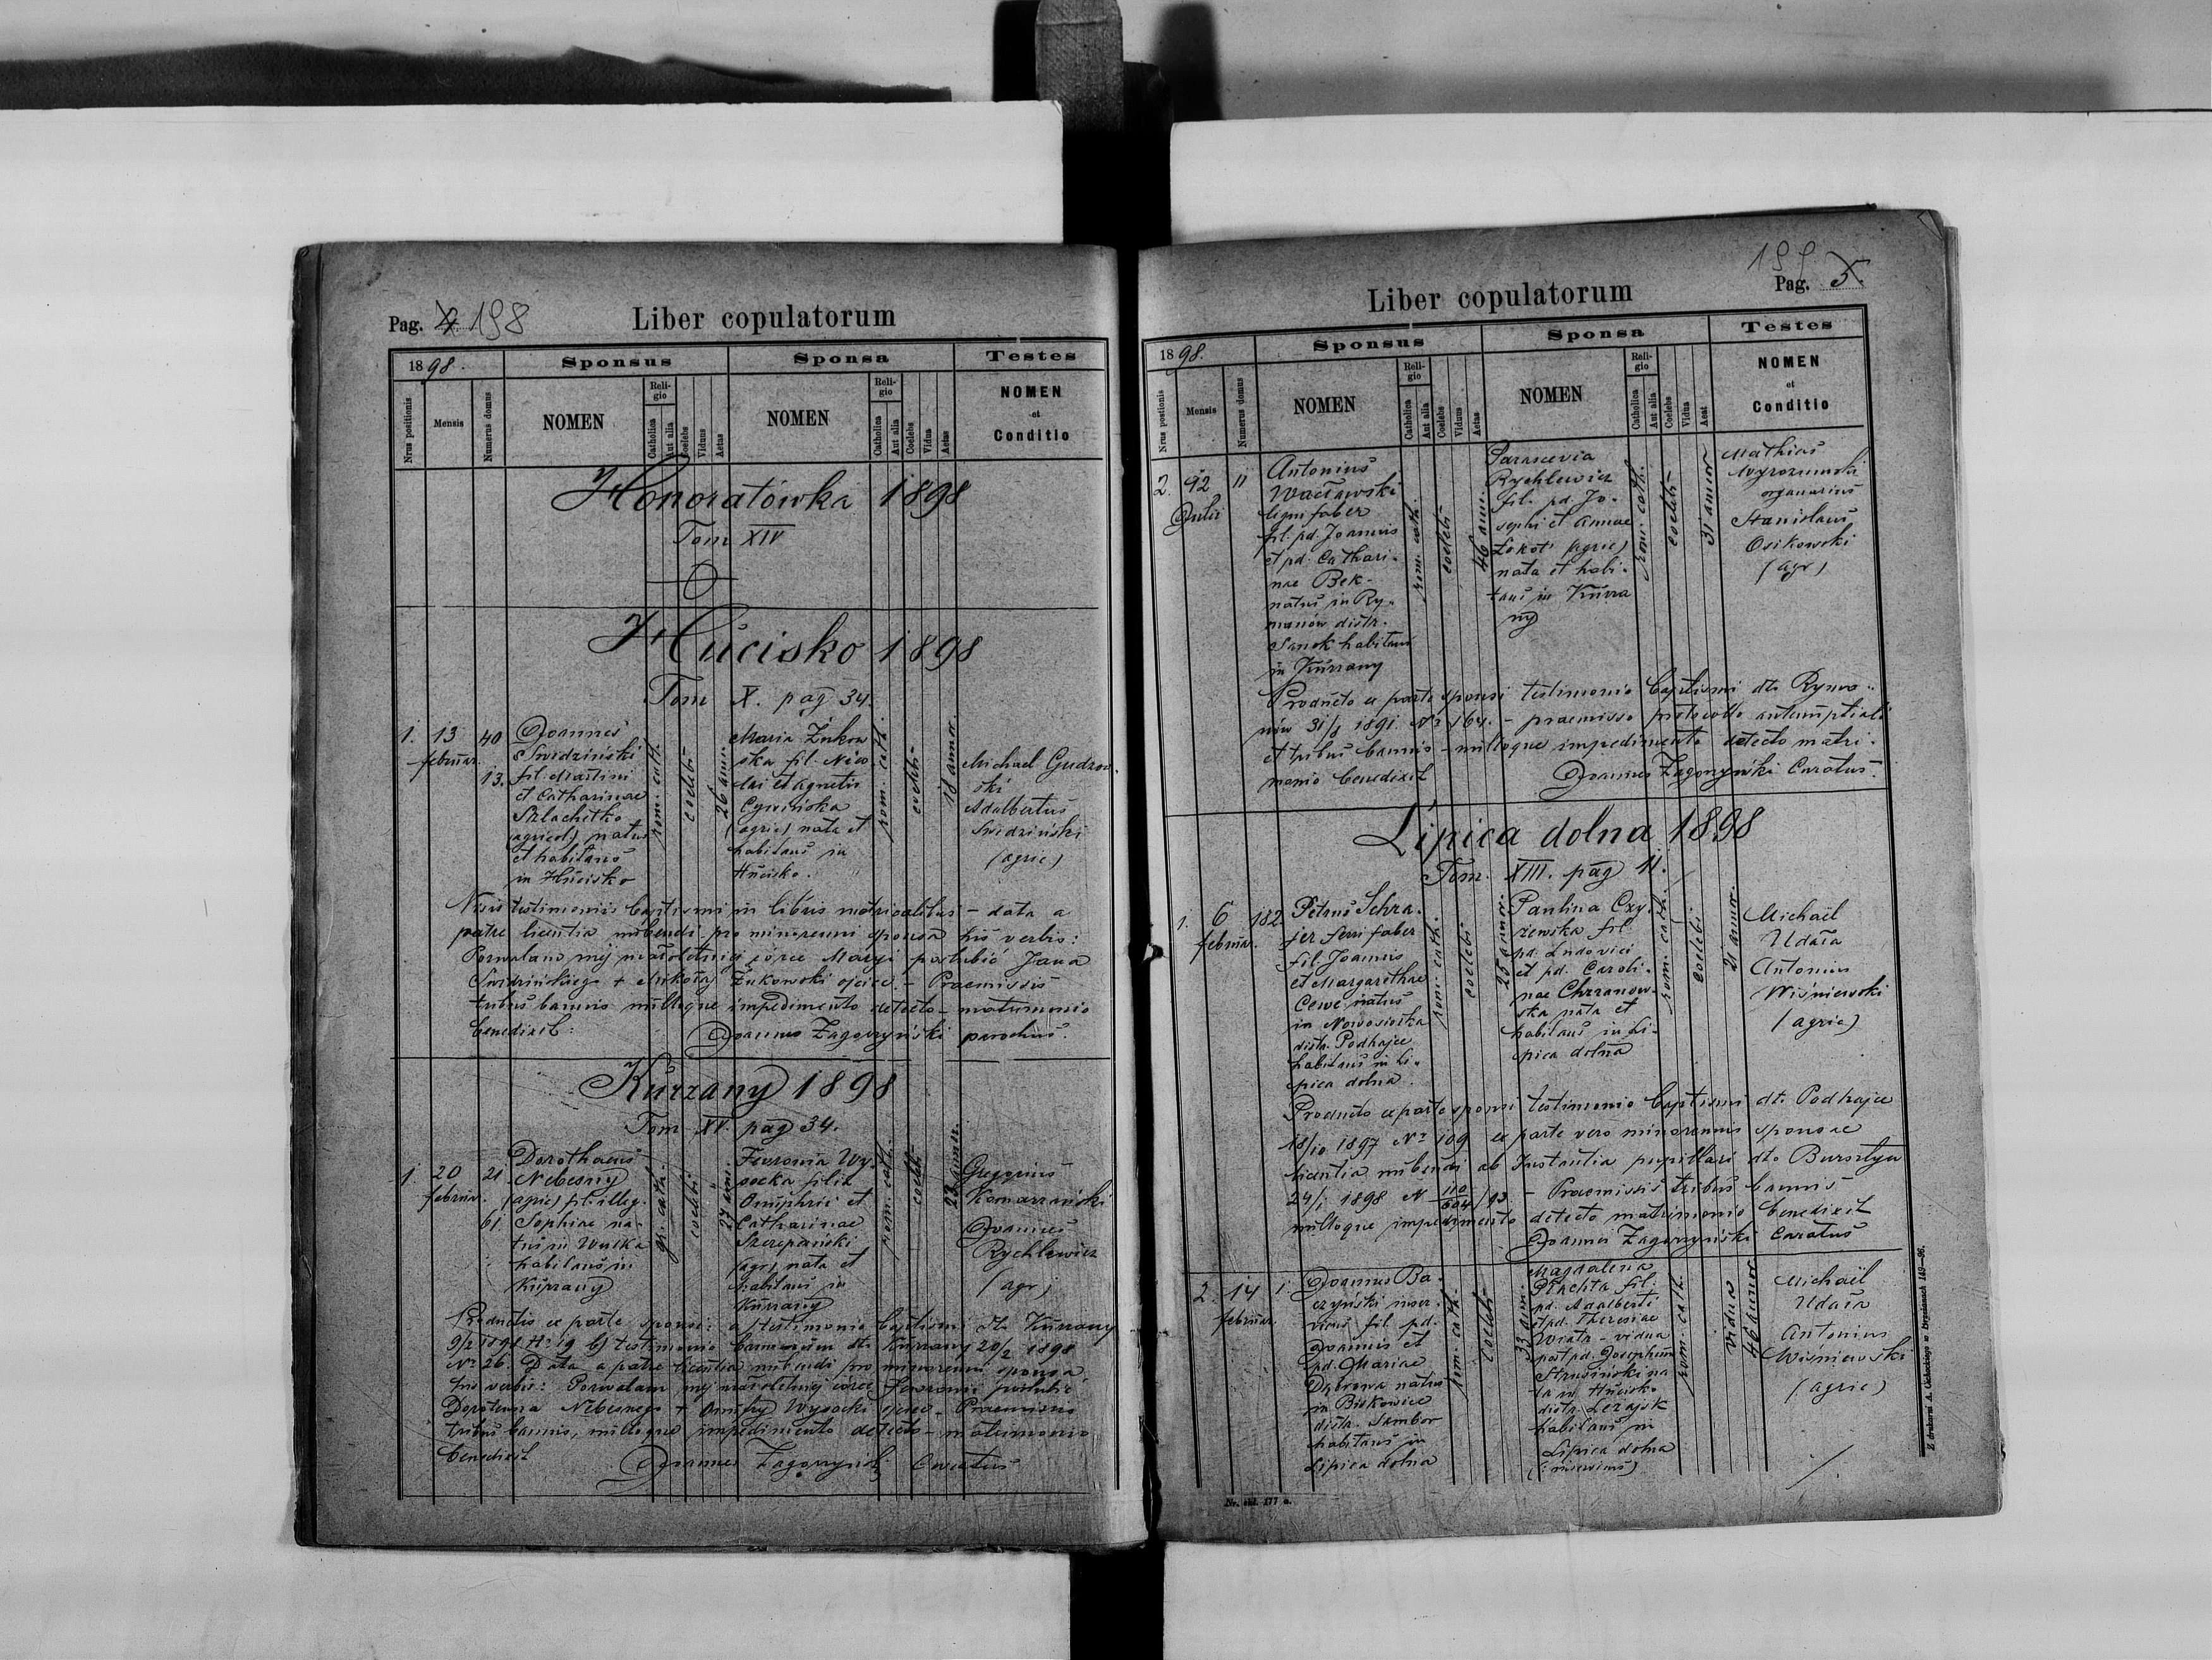 Pag. 4. 198
Liber copulatorum
1898.
Sponsus
Sponsa
Testes
Nrus positionis
Mensis
Numerus domus
NOMEN
Religio
Catholica
Aut alia
Coelebs
Viduus
Aetas
NOMEN
Religio
Catholica
Aut alia
Coelebs
Vidua
Aetas
NOMEN
et
Conditio
Honoratówka 1898
Tom XIV
Hucisko 1898
Tom X. pag 34.
1.
13
februar.
40
13.
Joannes
Swidziński
fil. Martini
et Catharinae
Szlachetko
(agricol.) natus
et habitans
in Hucisko
rom. cath.
coelebs
26 ann.
Maria Żukow
ska fil. Nico
lai et Agnetis
(agric) nata et
habitans in
Hucisko.
rom. cath.
coelebs
18 annor.
Michael Gudzow
ski
Adalbertus
Swidziński
(agric)
Visis testimoniis baptismi in libris metricalibus - data a
patre licentia nubendi pro minorenni sponsa his verbis:
Pozwalam mej małoletniej córce Maryi poślubić Jana
Swidzińskiego + Mikołaj Żukowski ojciec. - Praemissis
tribus bannis nulloque impedimento detecto - matrimonio
benedixit:
Joannes Zagorzyński parochus.
Kurzany 1898
Tom XV. pag 34.
1
20
februar.
21
61
Dorotheus
Nebesny
(agric) fil. illeg.
Sophiae na-
tus in Wulka
habitans in
Kurzany
gr. cath.
coelebs
27 ann.
Fevronia Wy-
socka filia
Onuphrii et
Catharinae
Szczepański
(agr) nata et
habitans in
Kurzany
rom. cath.
coelebs
23 annor.
Gregorius
Komarzański
Joannes
Rychlewicz
(agr)
Productis ex parte sponsi: a/ testimonio baptismi dto Kurzany
9/2 1898 Nr 19 b/ testimonio bannorum dto Kurzany 20/2 1898
Nr 26. Data a patre licentia nubendi pro minorenni sponsa
his verbis: Pozwalam mej małoletniej córce Fewronii poślubić
Doroteusza Nebesnego + Onufry Wysocki ojciec - Praemissis
tribus bannis, nulloque impedimento detecto - matrimonio
benedixit
Joannes Zagorzyński Curatus
199
Pag. 5.
Liber copulatorum
1898.
Sponsus
Sponsa
Testes
Nrus positionis
Mensis
Numerus domus
NOMEN
Religio
Catholica
Aut alia
Coelebs
Viduus
Aetas
NOMEN
Religio
Catholica
Aut alia
Coelebs
Vidua
Aeat
NOMEN
et
Conditio
2.
12
Julii
11
Antonius
Wacławski
ligni faber
fil. pd. Joannis
et pd. Cathari-
nae Bek -
natus in Ry-
manów distr.
Sanok habitans
in Kurzany
rom. cath.
coelebs
46 ann.
Parascevia
Rychlewicz
fil. pd. Jo-
sephi et Annae
Łokot (agric)
nata et habi-
tans in Kurza
ny
rom. cath.
coelebs
31 annor
Mathias
Wyrozumski
organarius
Stanislaus
Osikowski
(agr)
Producto ex parte sponsi testimonio baptismi dto Ryma-
nów 31/8 1891 Nr 164. - praemisso protocollo antenuptiali
et tribus bannis - nulloque impedimento detecto matri-
monio benedixit
Joannes Zagorzyński Curatus.
Lipica dolna 1898
Tom. XIII. pag 11.
1.
6
februar.
182
Petrus Schra-
jer ferri faber
fil. Joannis
et Margarethae
Cewe natus
in Nowosiółka
distr. Podhajce
habitans in Li-
pica dolna.
rom. cath.
coelebs
25 annor.
Paulina Czy-
żewska fil.
pd. Ludovici
et pd. Caroli-
nae Chrzanow-
ska nata et
habitans in Li-
pica dolna
rom. cath.
coelebs
21 annor.
Michaël
Udała
Antonius
Wiśniewski
(agric)
Producto ex parte sponsi testimonio baptismi dt. Podhajce
18/10 1897 Nr 109 ex parte vero minorennis sponsae
licentia nubendi ab Instantia pupillari dto Bursztyn
24/1 1898 N 110/604/93 - Praemissis tribus bannis
nulloque impedimento detecto matrimonio benedixit
Joannes Zagorzyński Curatus
2.
14
februar.
1
Joannes Ba-
czyński inser-
viens fil. pd.
Joannis et
pd. Mariae
Dąbrowa natus
in Biskowice
distr. Sambor
habitans in
Lipica dolna
rom. cath.
coelebs
33 ann.
Magdalena
Płachta fil.
pd. Adalberti
et pd. Theresiae
Wiata - vidua
post pd. Josephum
na
ta in Hucisko
distr. Leżajsk
habitans in
Lipica dolna
rom. cath.
vidua
46 annor
Michaël
Udała
Antonius
Wiśniewski
(agric)
Nr. skł. 177 a.
Z drukarni A. Cichockiego w Brzeżanach 149—96.